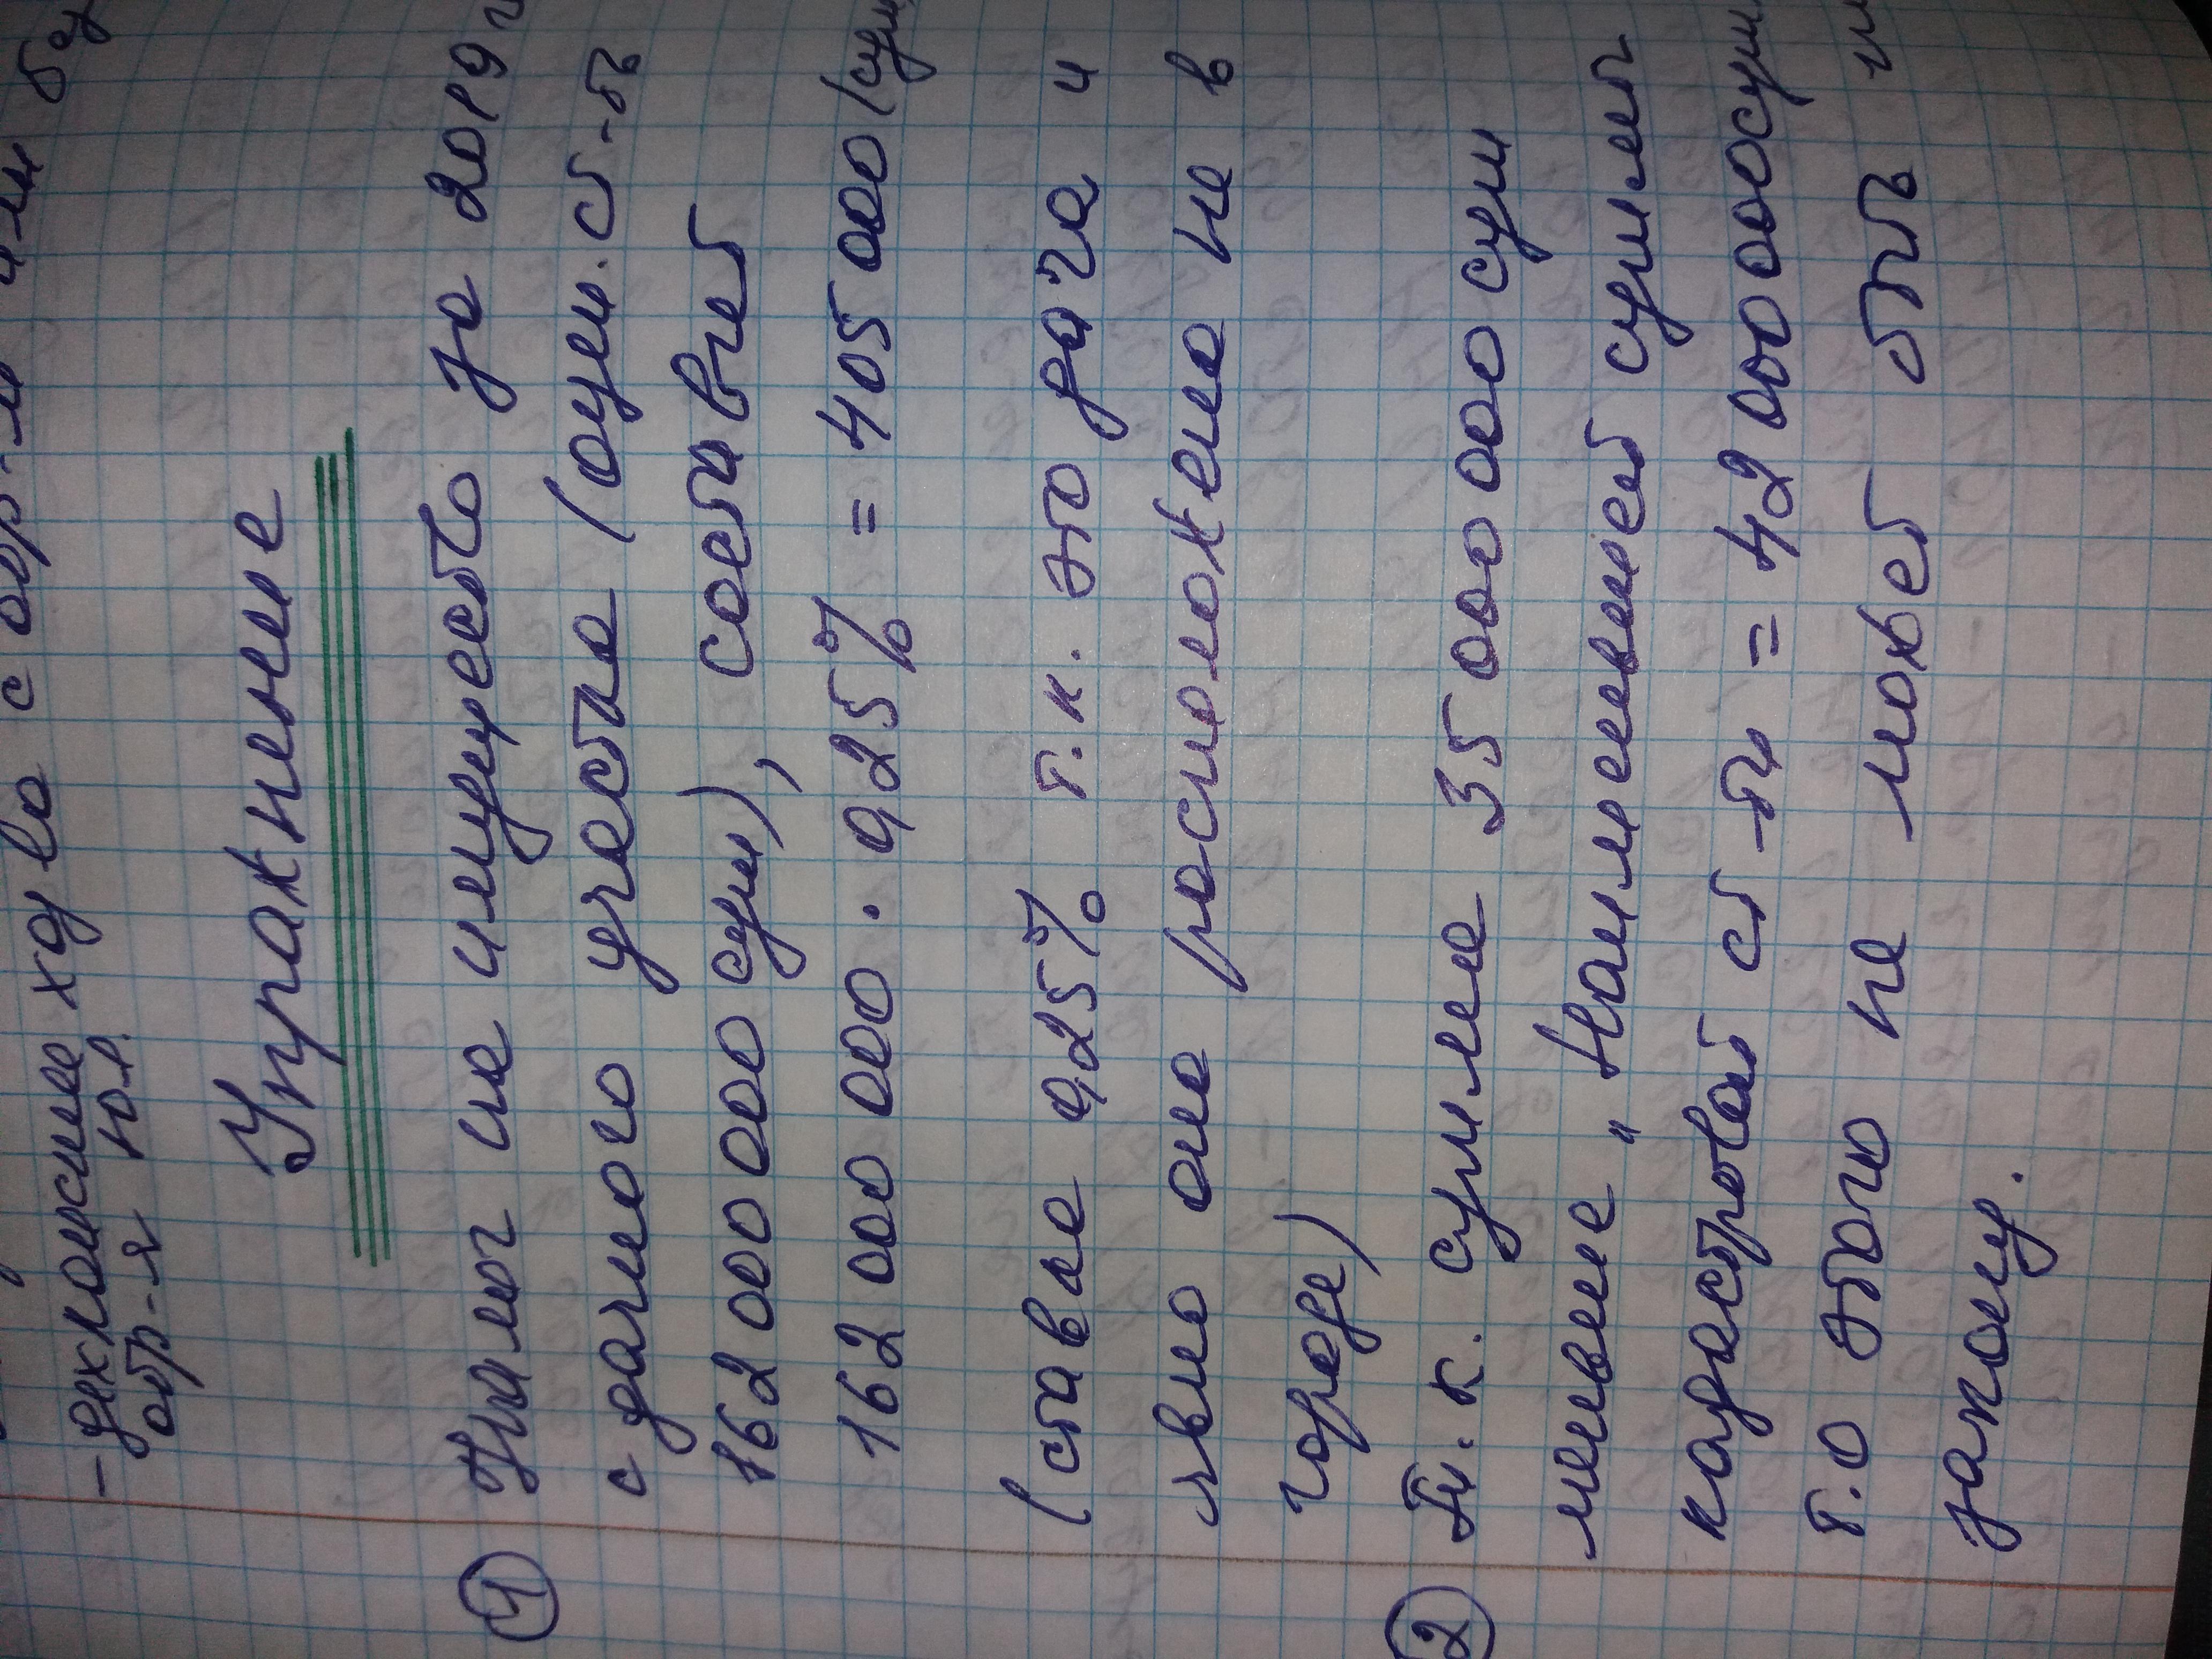 с обр-я
- уклонение ходо
обр-я юл.
Упражнение
1 Налог на имущество за 2019г
с дачного участка (оцен. ст-ть
162 000 000 сум), составит
162 000 000 · 0,25% = 405 000 (сум
(ставке 0,25% т.к. это дача и
явно она расположена не в
городе)
2 Т. к. сумма 35 000 000 сум
меньше „Наименьшей суммы
кадастровой ст-ти = 42 000 000 сум
т.о этого не может быть
закону.